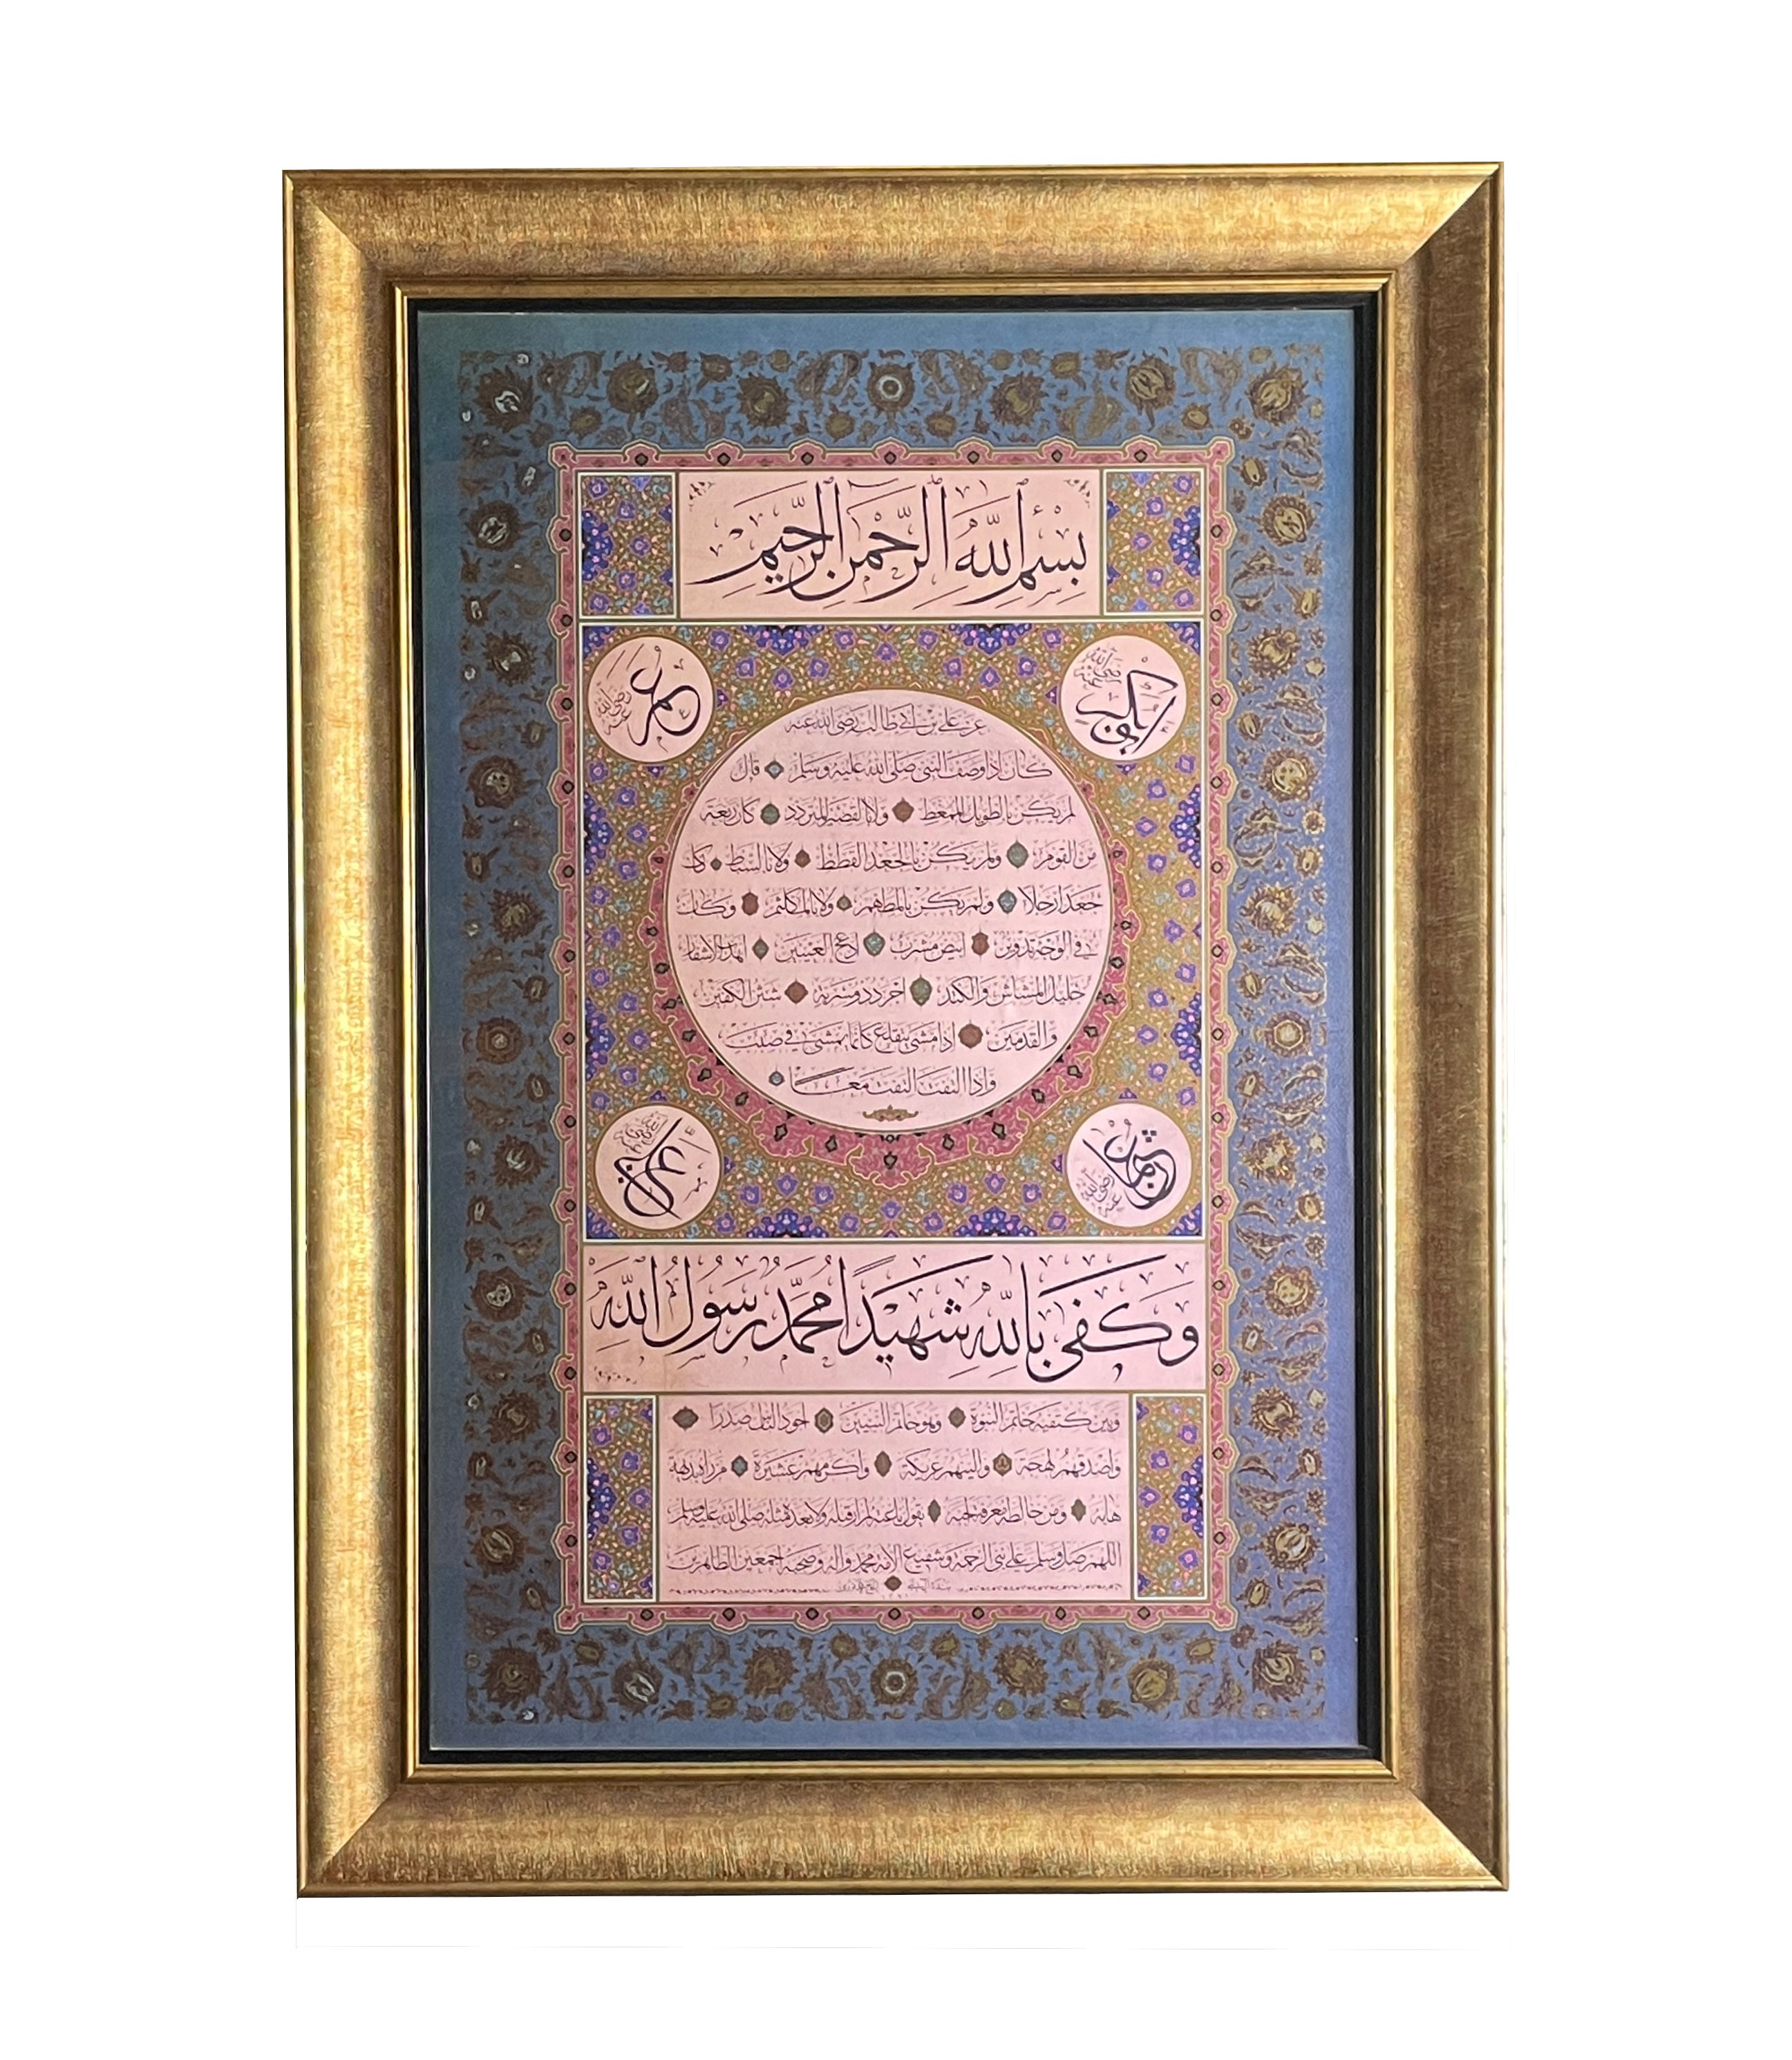 بِسْمِ اللَّهِ الرَّحْمَنِ الرَّحِيمِ
ابوبكر رضي الله عنه
عمر رضي الله عنه
عن علي بن ابي طالب رضي الله عنه
كان اذا وصف النبي صلى الله عليه وسلم قال
لم يكن بالطويل الممغط ولا بالقصير المتردد كان ربعة
من القوم ولم يكن بالجعد القطط ولا بالسبط كان
جعدا رجلا ولم يكن بالمطهم ولا بالمكلثم وكان
في الوجه تدوير ابيض مشرب ادعج العينين اهدب الاشفار
جليل المشاش والكتد اجرد ذو مسربة شثن الكفين
والقدمين اذا مشى يتقلع كانما يمشي في صبب
واذا التفت التفت معا
عثمان رضي الله عنه
علي رضي الله عنه
وَكَفَى بِاللَّهِ شَهِيدًا مُحَمَّدٌ رَسُولُ اللَّهِ
وبين كتفيه خاتم النبوة وهو خاتم النبيين اجود الناس صدرا
واصدقهم لهجة والينهم عريكة واكرمهم عشيرة من راه بديهة
هابه ومن خالطه معرفة احبه يقول ناعته لم ار قبله ولا بعده مثله صلى الله عليه وسلم
اللهم صل وسلم على نبي الرحمة وشفيع الامة محمد واله وصحبه اجمعين الطاهرين